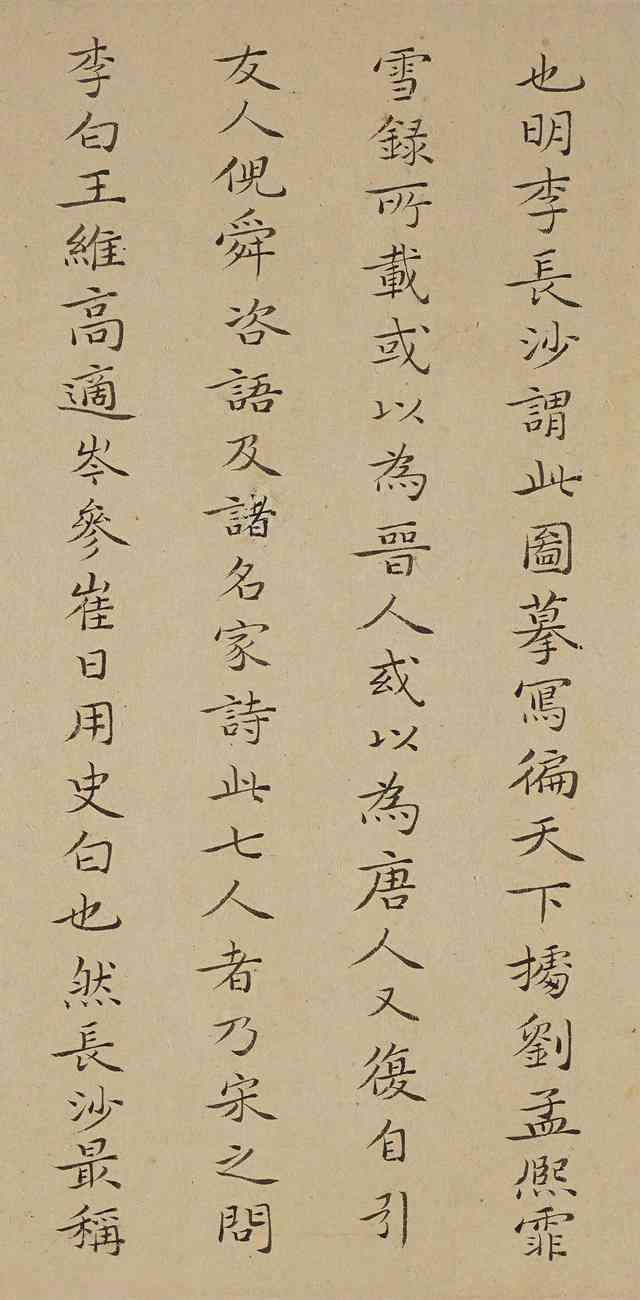 也明李長沙謂此圖摹寫徧天下據劉孟熈霏
雪録所載或以為晉人或以為唐人又復自引
友人倪舜咨語及諸名家詩此七人者乃宋之問
李白王維高適岑參崔日用史白也然長沙最稱